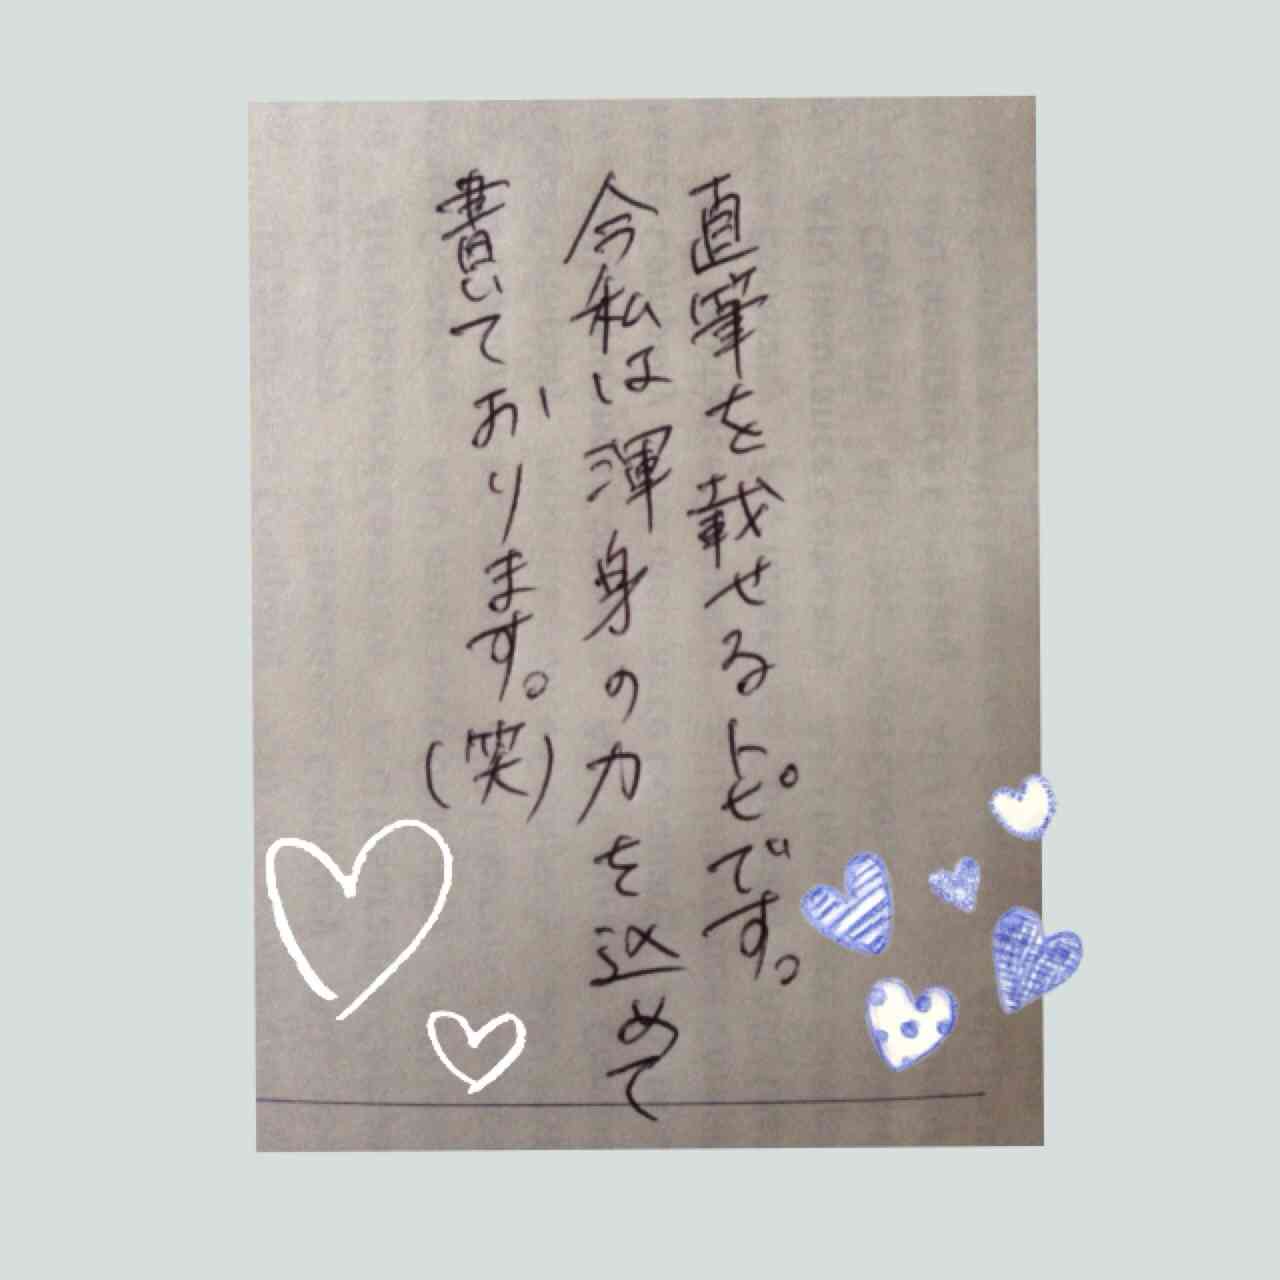 直筆を載せるトピです。
今私は渾身の力を込めて
書いております。(笑)